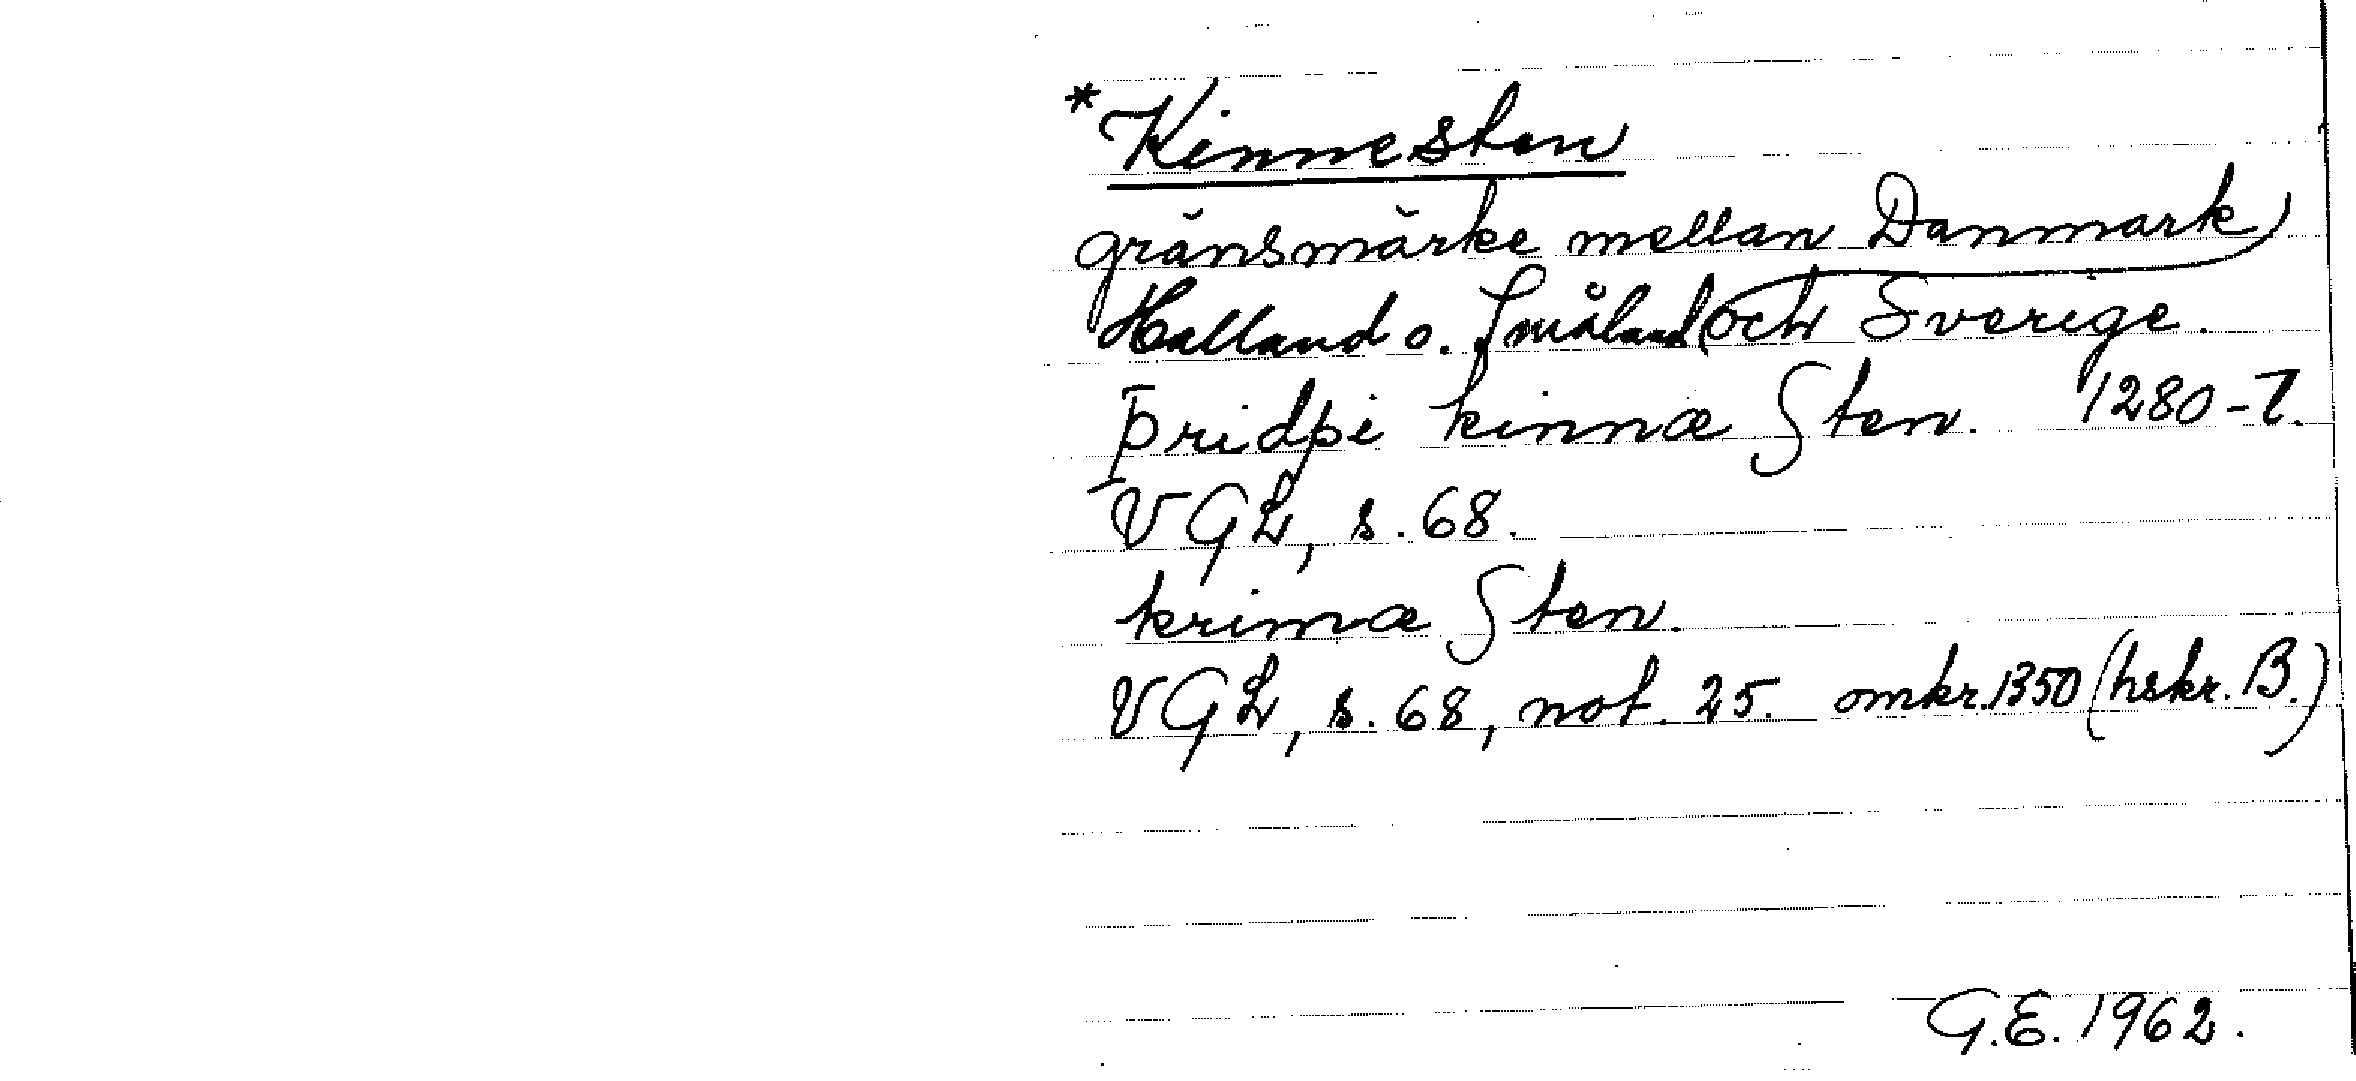 *Kinnesten
gränsmärke mellan Danmark
Halland o. Småland och Sverige.
þridþi kinnæ Sten. 1280-t.
VGL, s. 68.
krimæ Sten.
VGL, s. 68, not. 25. omkr. 1350 (hskr. B.)
G.E. 1962.